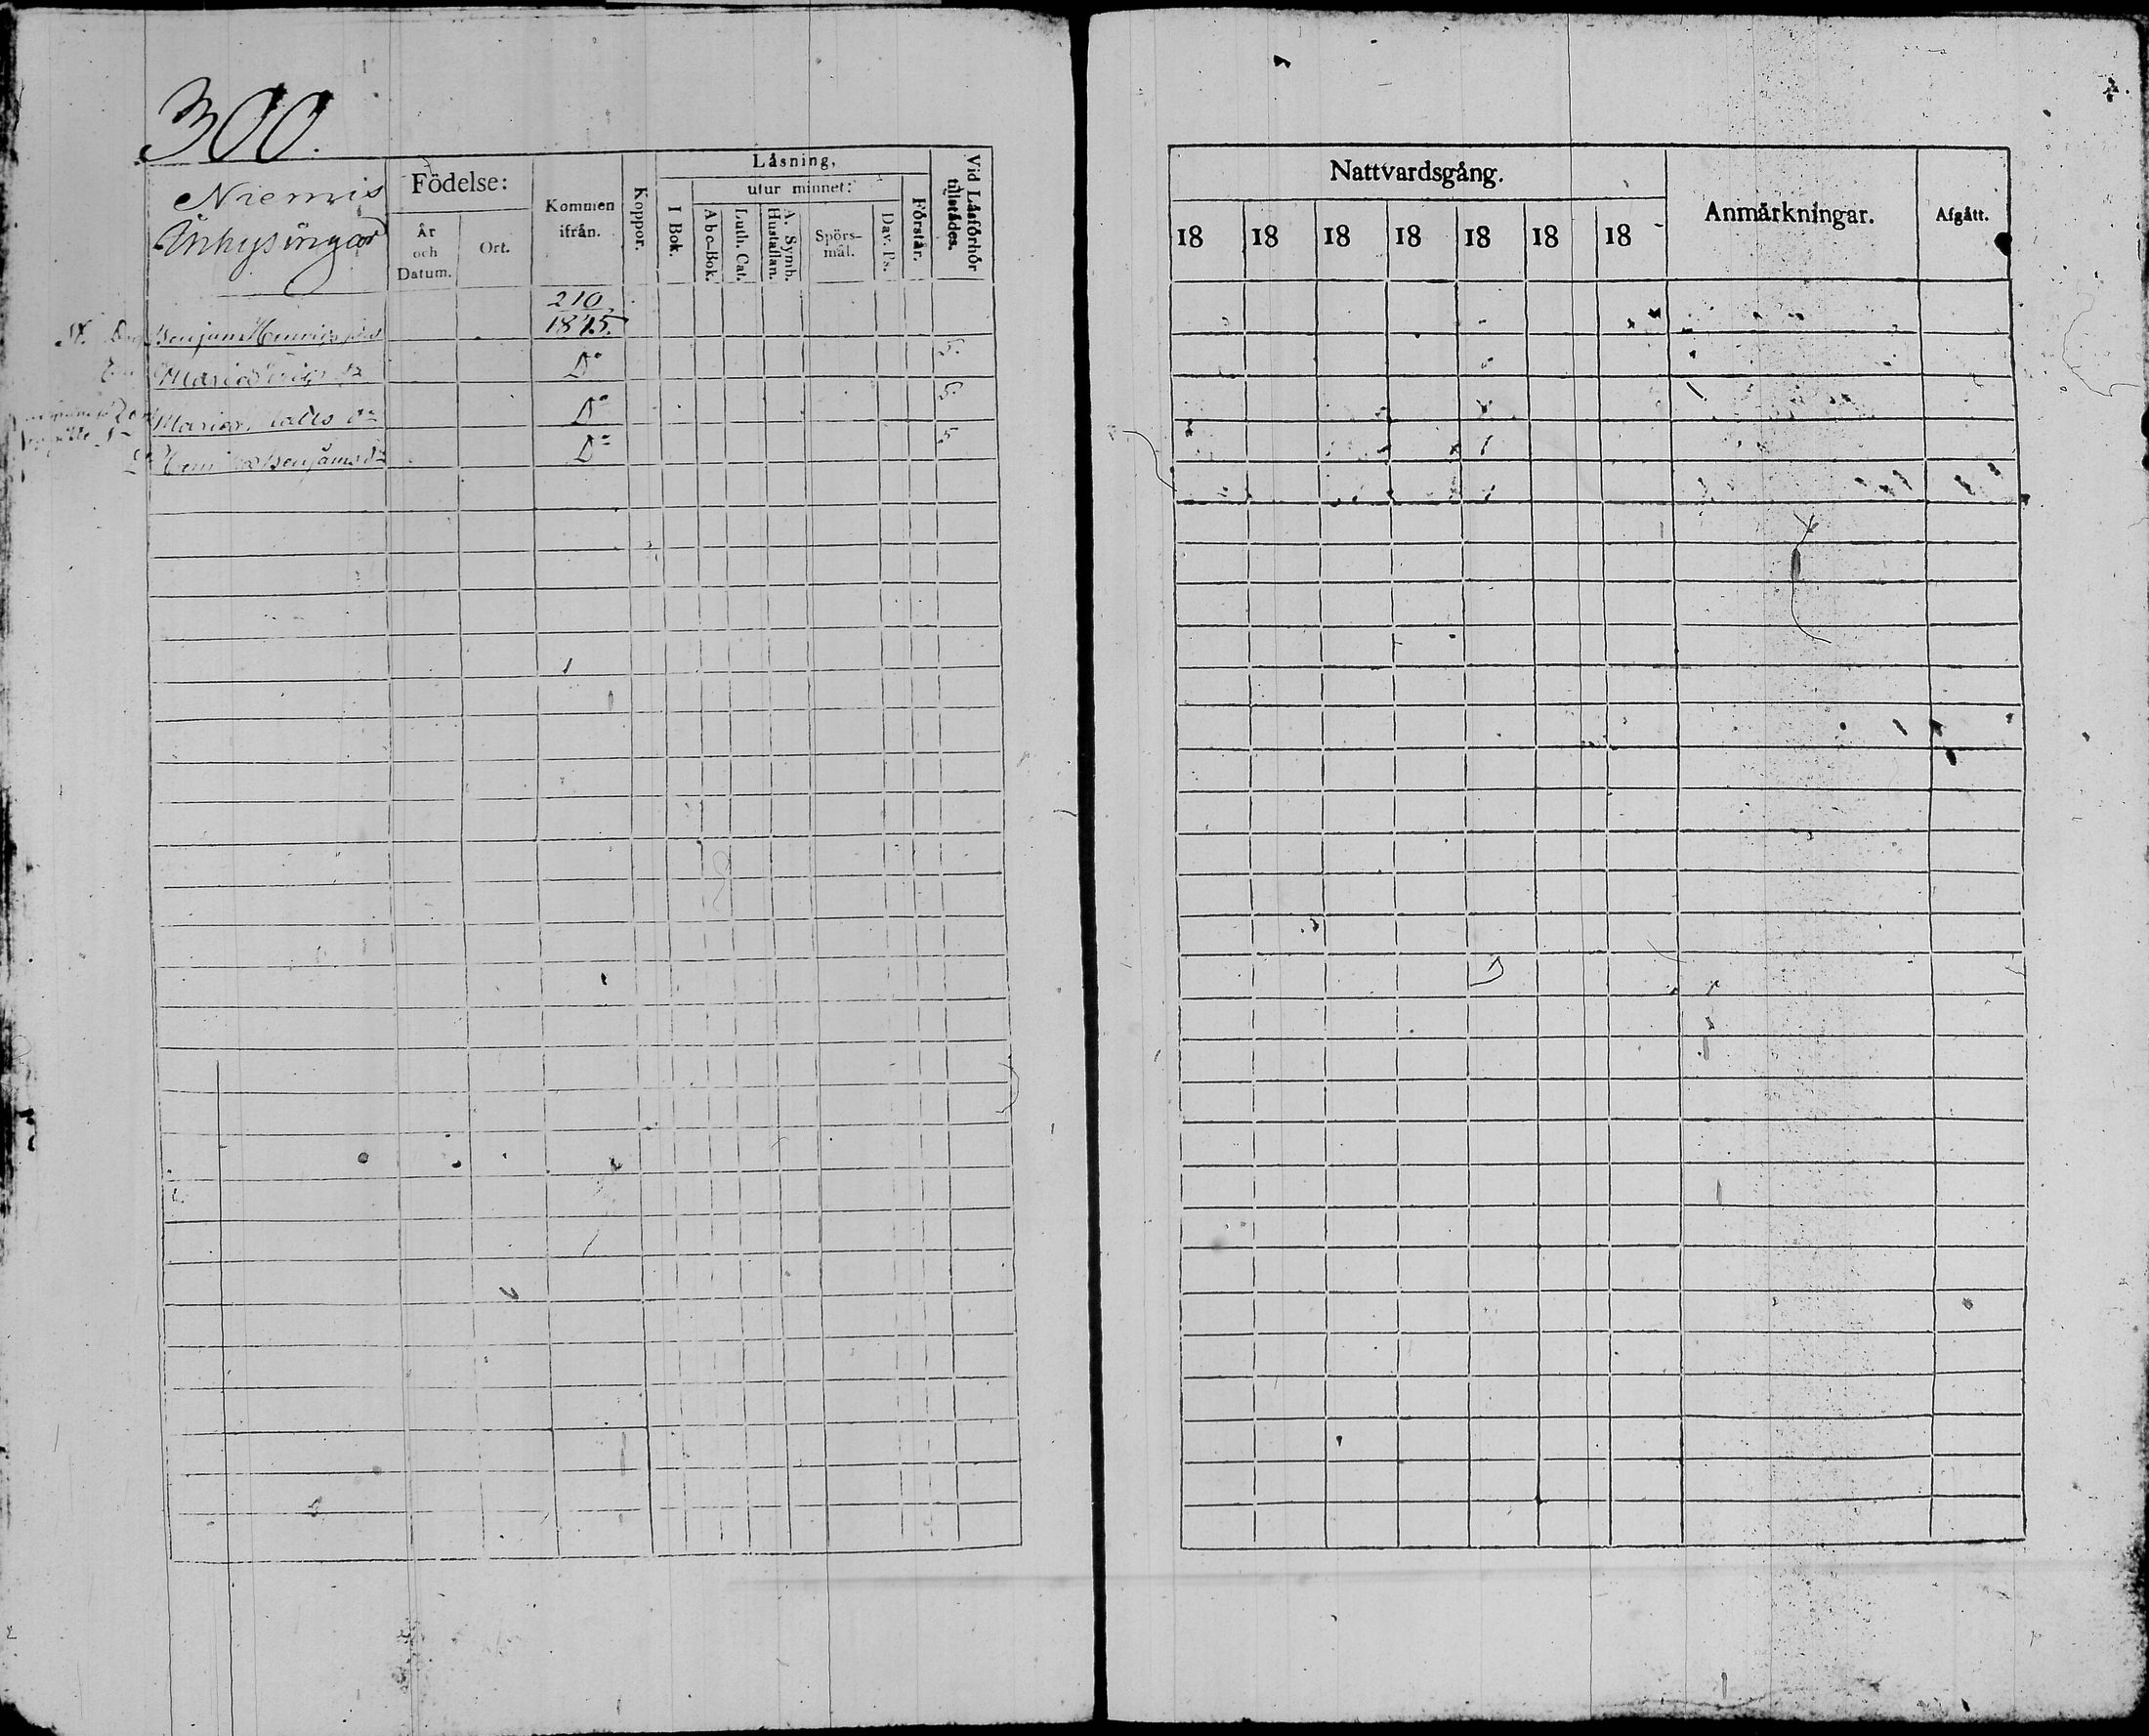 300.
Niemis
Inhysingar
Födelse:
År
och
Datum.
Ort.
Kommen
ifrån.
Koppor.
Låsning,
utur minnet:
I Bok.
Abc-Bok.
Luth. Cat.
A. Symb.
Hustaflan.
Spörs-
mål.
Dav. Ps.
Förstår.
Vid Låsförhör
tillstådes.
210
1815.
Benjam Henricsson
Maria D° 5.
Maria D° 5.
Benjamsdr D° 5
Nattvardsgång.
18 18 18 18 18 18 18
Anmärkningar.
Afgått.